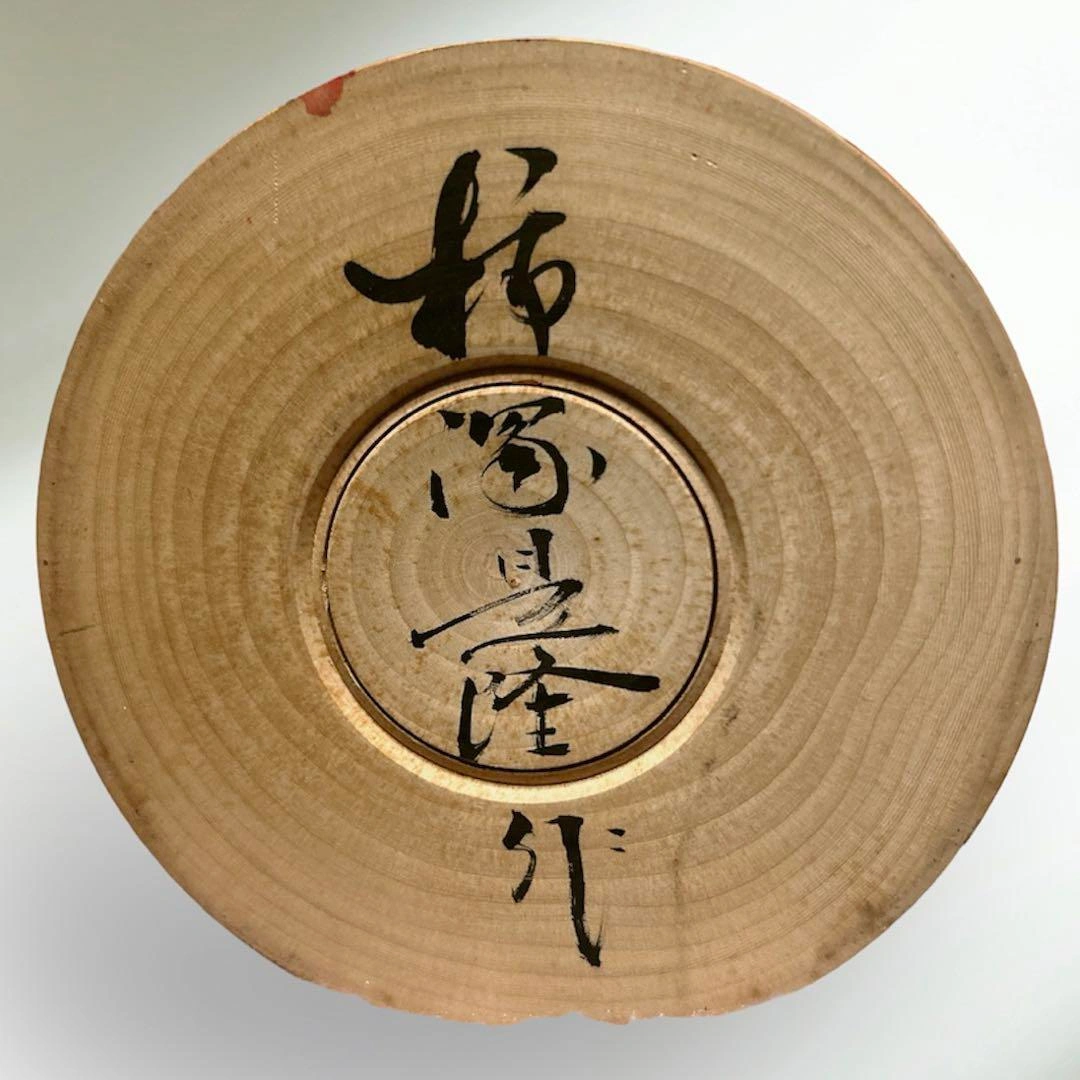 柿澤是隆作